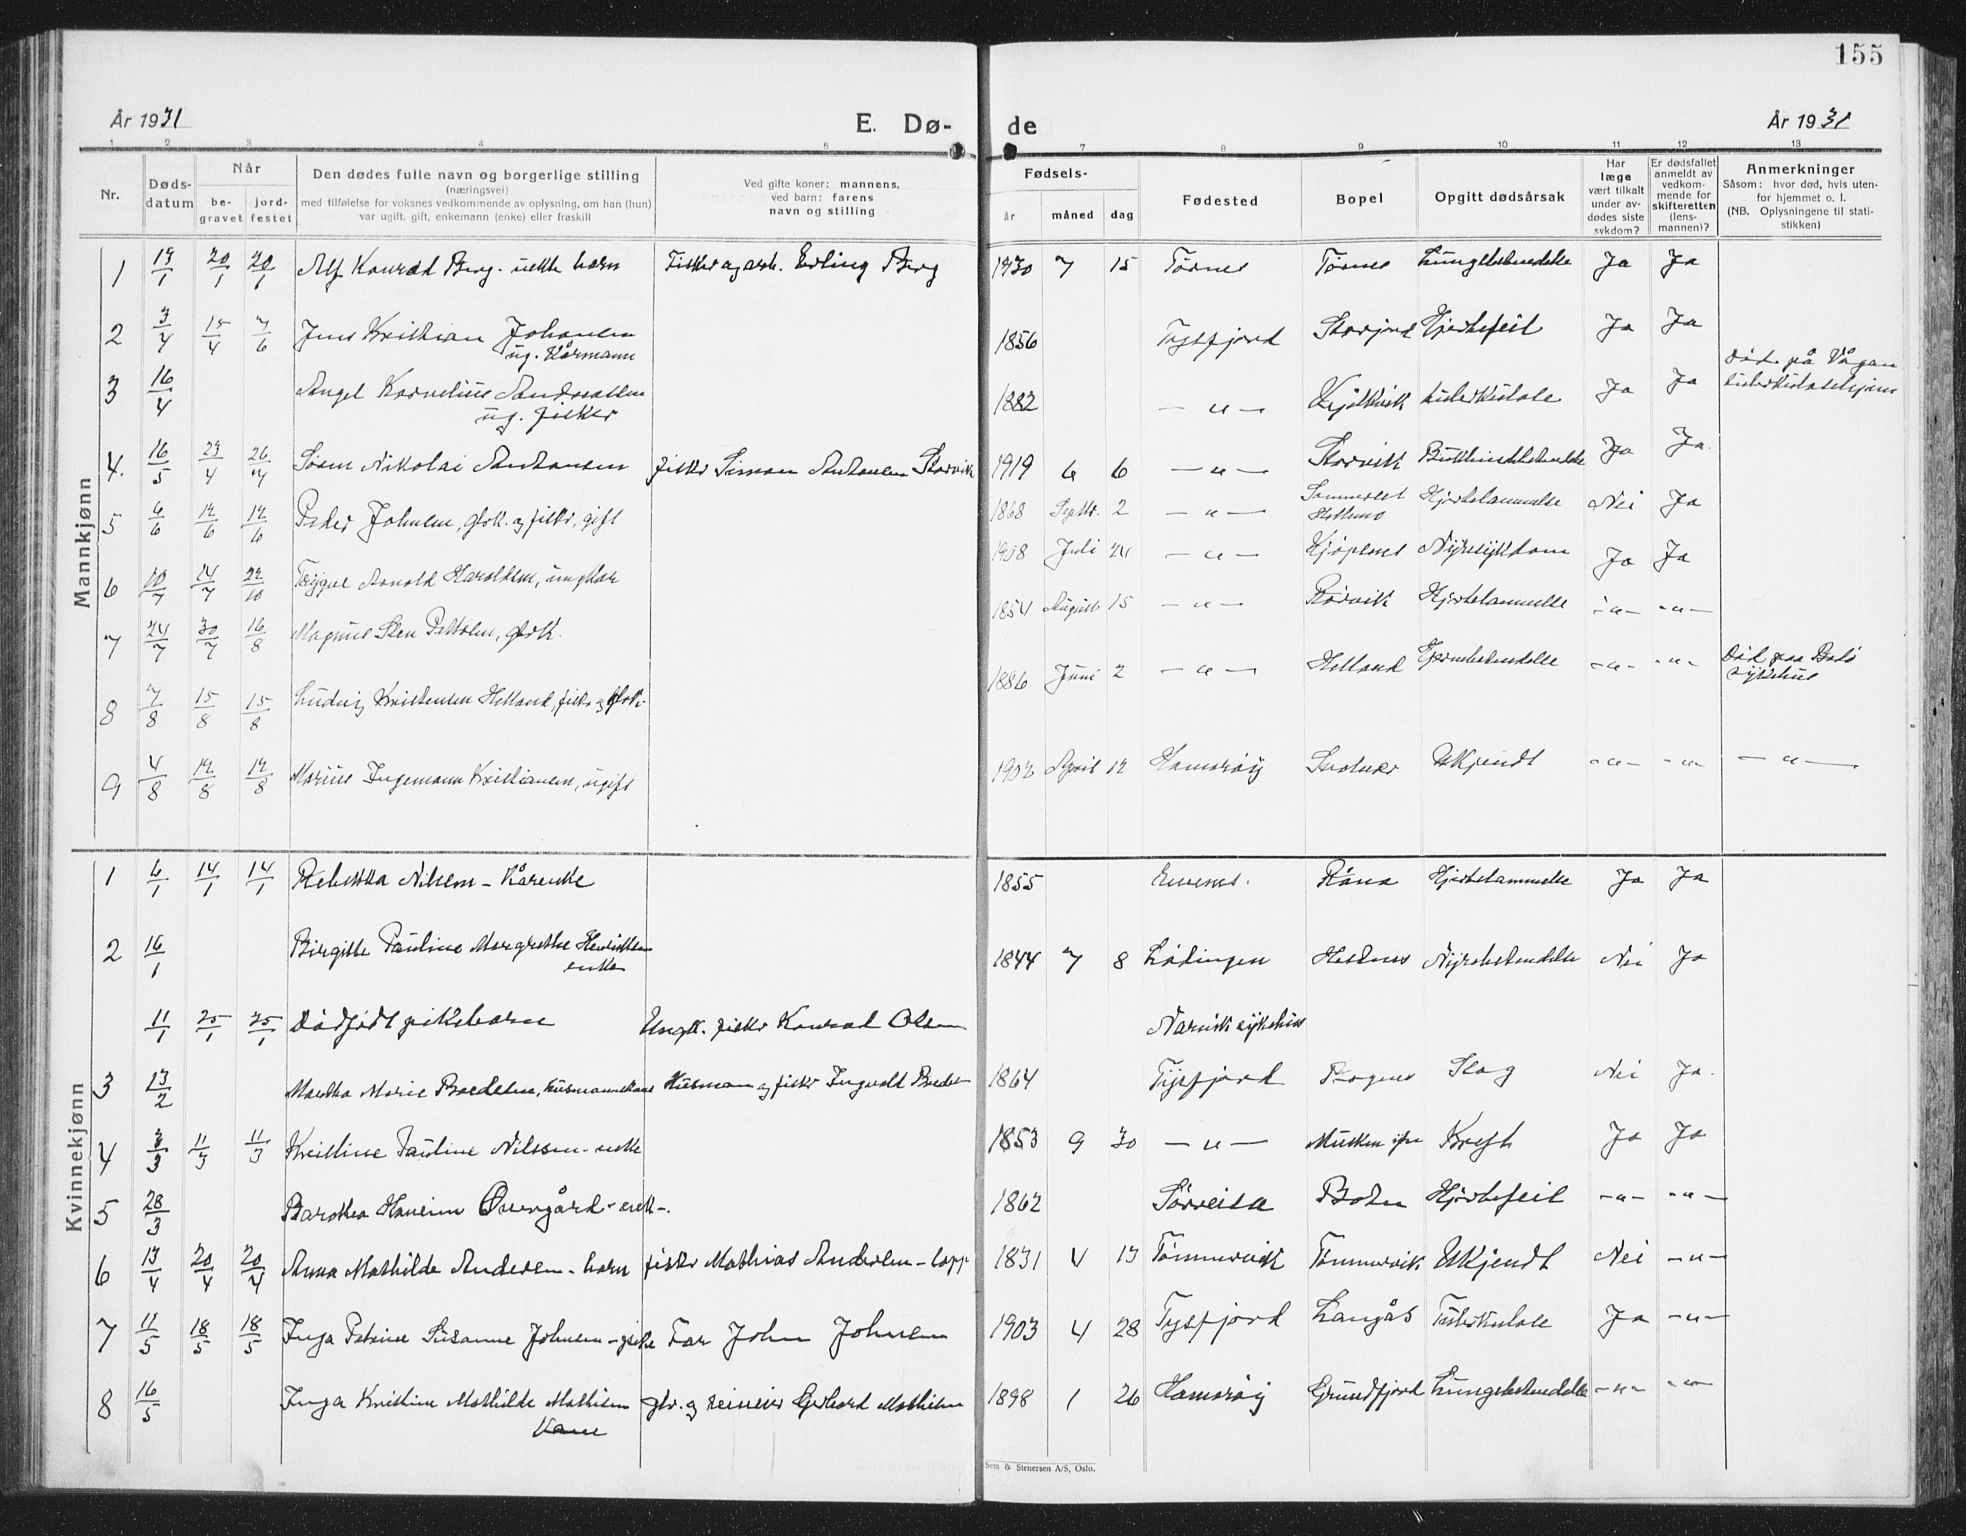 155
År 1931
E. Dø-
de
År 1931
1 2 3 4 5 7 8 9 10 11 12 13
Nr.
Døds-
datum
Når
be-
gravet
jord-
festet
Den dødes fulle navn og borgerlige stilling
(næringsvei)
med tilføielse for voksnes vedkommende av oplysning, om han (hun)
var ugift, gift, enkemann (enke) eller fraskill
Ved gifte koner: mannens,
ved barn: farens
navn og stilling
Fødsels-
år måned dag
Fødested
Bopel
Opgitt dødsårsak
Har
læge
vært tilkalt
under av-
dødes siste
sykdom?
Er dødsfallet
anmeldt av
vedkom-
mende for
skifteretten
(lens-
mannen)?
Anmerkninger
Såsom: hvor død, hvis uten-
for hjemmet o. l.
(NB. Oplysningene til stati-
stikken)
Mannkjønn
1 19/1 20/1 20/1 Alf Konrad Berg - uekte barn Erling Berg 1930 7 15 Tørnes Tørnes Lungebetendelse Ja Ja
2 3/4 15/4 7/6 Jens Kristian Johansen 1856 Tysfjord Storjord Hjertefeil Ja Ja
ug. Kårmann
3 16/4 Angel Kornelius Andreassen 1882 — " — Kjølkvik tuberkulose Ja Ja Död på Vågan
ug. fisker
4. 16/5 23/4 26/7 Søren Nikolai Antonsen fisker Simon Antonsen Storvik 1919 6 6 — " — Storvik Ja Ja.
5 6/6 12/6 12/6 Peder Johnsen, gbrk. og fisker, gift 1868 Septbr. 2 — " — Hjertelammelse Nei Ja
6 10/7 14/7 22/10 Trygve Arnold Haraldsen, ungkar 1908 Juli 24 — " — Kjøpsnes Nyresykdom Ja Ja
7 24/7 30/7 16/8 Magnus Sten Pettersen, gbrk. 1854 August 15 — " — Rørvik Hjertelammelse - " - - " -
8 7/8 15/8 15/8 Ludvig Kristensen Helland, fisker og gbrk. 1886 Juni 2 — " — Helland Hjernebetendelse - " - - " - Död paa Bodö
sykehus
9 4/8 12/8 12/8 Marius Ingemann Kristiansen, ugift 1902 April 12 Hamarøy Ukjendt - " - - " - — " —
Kvinnekjønn
1 6/1 14/1 14/1 Rebekka Nilsen - Kårenke 1855 Evenes. Råna Hjertelammelse Ja Ja
2 16/1 Birgitte Pauline Margrethe Henriksen 1844 7 8 Lödingen Nyrebetendelse Nei Ja
enke
11/1 25/1 25/1 Dödfödt pikebarn Ungk. fisker Konrad Olsen Narvik sykehus
3 13/2 Martha Marie Husmann og fisker Ingvald 1864 Tysfjord Slag Nei Ja.
4 3/3 11/3 11/3 Kristine Pauline Nilssen - enke 1853 9 30 — " — Musken Kreft Ja Ja
5 28/3 Øvergård - enke -. 1862 Sörreisa Hjertefeil - " - - " -
6 13/4 20/4 20/4 Anna Mathilde Andersen - barn fisker Mathias Andersen - lapp 1831 4 13 Tömmervik Tömmervik Ukjendt Nei - " -
7 11/5 18/5 18/5 Inga Petrine Susanne Johnsen - Far John Johnsen 1903 4 28 Tysfjord Langås Tuberkulose Ja - " -
8 16/5 Inga Kristine Mathilde Mathisen gbr. og Gerhard Mathisen 1898 1 26 Hamarøy Grundfjord Lungebetendelse - " - - " -
Kone
Sem & Stenersen A/S, Oslo.